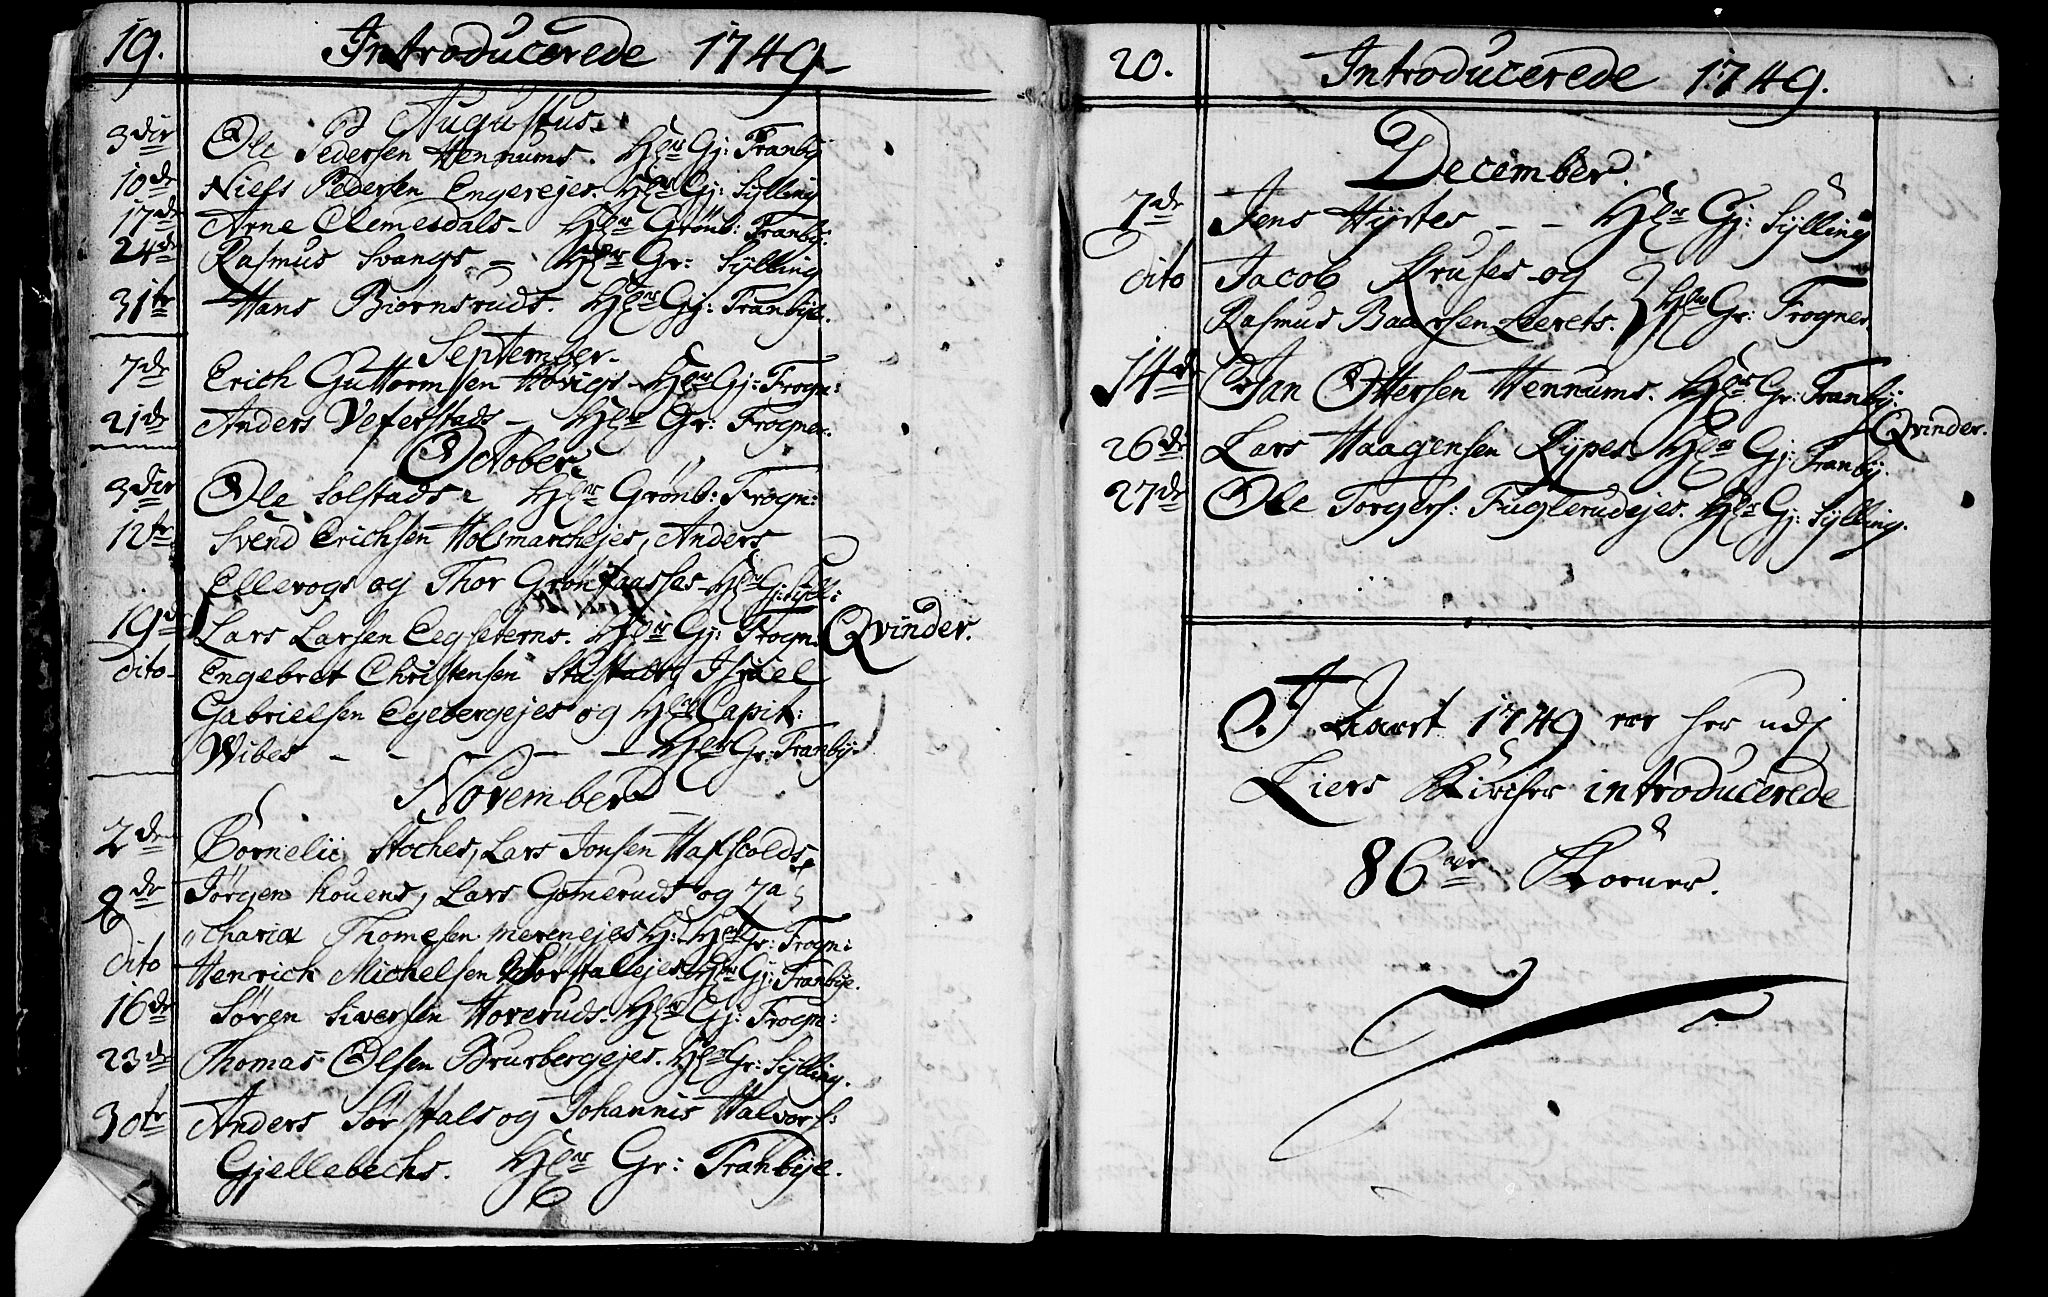 19. Introducerede 1749.
Augustus.
3die Ole Pedersen Hennums. Hr Gj: Tranby
10de Niels Pedersen Engerejes. Hr Gj: Sylling
17de Arne Clemesdals - Hr Grönb: Tranbÿ:
24de Rasmus Svangs - Hr Gr: Sÿlling
31te Hans Biornsruds. Hr Gj: Tranbÿe.
September.
7de Erich Guttormsen Hövigs - Hr Gj: Frogn:
21de Anders Veferstads - Hr Gr: Frogner.
October.
3die Ole Solstads - Hr Grönb: Frogn:
12te Svend Erichsen Holsmarchejes, Anders
Ellerogs og Thor Hr G: Sÿll:
19de Lars Larsen Hr Gj: Frogn. Qvinder.
dito - Engebret Christensen Israel
Gabrielsen Egebergejes og Hr Capit:
Wibes - - - - Hr Gr: Tranbÿ.
November
2de Cornelii Stoches, Lars Jonsen Hafscolds,
Jörgen Kouens, Lars Gomeruds og Za-
9de charias Thomesen Merenejes H: Hr Gr: Frogn:
dito Henrich Michelsen Hr Gj: Tranbÿe.
16de Sören Siversen Horeruds. Hr Gj: Frogn:
23de Thomas Olsen Brurbergejes. Hr Gr: Sÿlling.
30te Anders Sörstals og Johannis Halvors:
Gjellebechs. Hr Gr: Tranbÿe.
20. Introducerede 1749.
December.
7de Jens Hÿrtes - - Hr Gj: Sÿlling
dito Jacob Kruses og
Rasmus Baarsen Leerets. } Hr Gr: Frogner
14de Jan Ottersen Hennums. Hr Gr: Tranbÿ.
Qvinder.
26de Lars Haagensen Rÿpes. Hr Gj: Tranbÿ.
27de Ole Torgers: Fuglerudejes. Hr Gj: Sÿlling.
I Aaret 1749 var her udj
Liers Kircher introducerede
86 Koener.